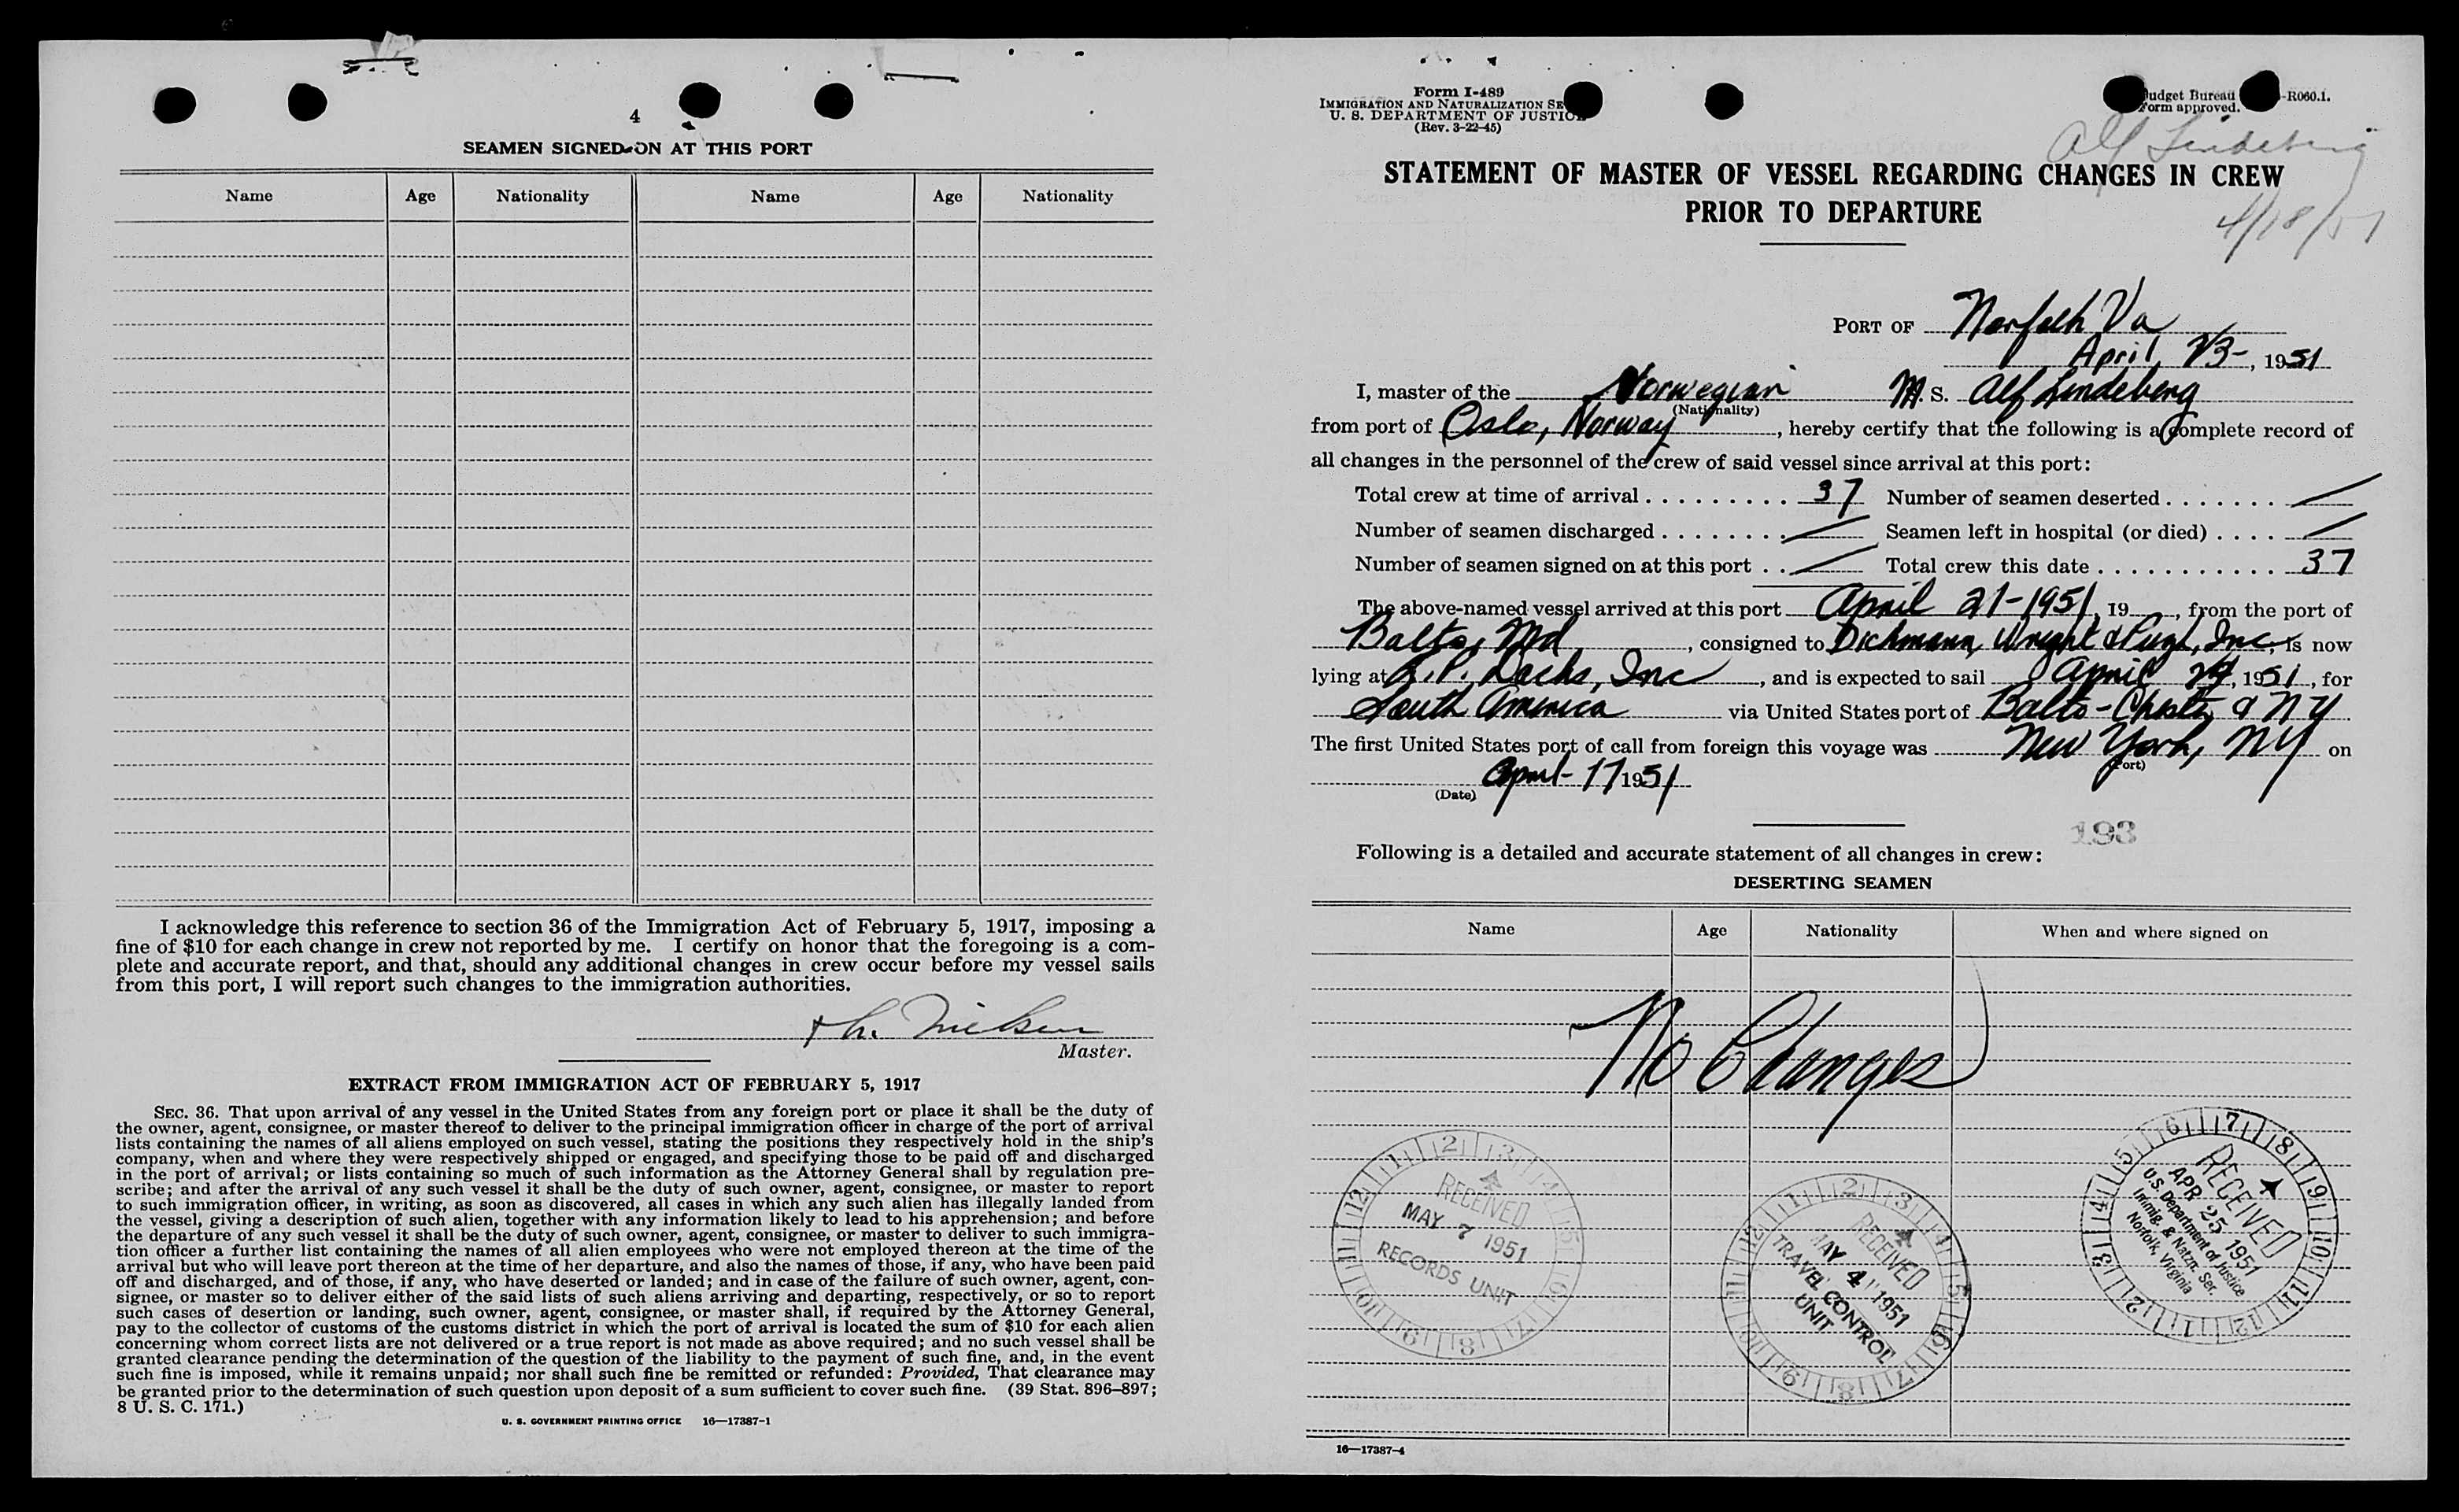 4
SEAMEN SIGNED ON AT THIS PORT
Name Age Nationality Name Age Nationality
I acknowledge this reference to section 36 of the Immigration Act of February 5, 1917, imposing a
fine of $10 for each change in crew not reported by me. I certify on honor that the foregoing is a com-
plete and accurate report, and that, should any additional changes in crew occur before my vessel sails
from this port, I will report such changes to the immigration authorities.
Nielsen
Master.
EXTRACT FROM IMMIGRATION ACT OF FEBRUARY 5, 1917
SEC. 36. That upon arrival of any vessel in the United States from any foreign port or place it shall be the duty of
the owner, agent, consignee, or master thereof to deliver to the principal immigration officer in charge of the port of arrival
lists containing the names of all aliens employed on such vessel, stating the positions they respectively hold in the ship's
company, when and where they were respectively shipped or engaged, and specifying those to be paid off and discharged
in the port of arrival; or lists containing so much of such information as the Attorney General shall by regulation pre-
scribe; and after the arrival of any such vessel it shall be the duty of such owner, agent, consignee, or master to report
to such immigration officer, in writing, as soon as discovered, all cases in which any such alien has illegally landed from
the vessel, giving a description of such alien, together with any information likely to lead to his apprehension; and before
the departure of any such vessel it shall be the duty of such owner, agent, consignee, or master to deliver to such immigra-
tion officer a further list containing the names of all alien employees who were not employed thereon at the time of the
arrival but who will leave port thereon at the time of her departure, and also the names of those, if any, who have been paid
off and discharged, and of those, if any, who have deserted or landed; and in case of the failure of such owner, agent, con-
signee, or master so to deliver either of the said lists of such aliens arriving and departing, respectively, or so to report
such cases of desertion or landing, such owner, agent, consignee, or master shall, if required by the Attorney General,
pay to the collector of customs of the customs district in which the port of arrival is located the sum of $10 for each alien
concerning whom correct lists are not delivered or a true report is not made as above required; and no such vessel shall be
granted clearance pending the determination of the question of the liability to the payment of such fine, and, in the event
such fine is imposed, while it remains unpaid; nor shall such fine be remitted or refunded: Provided, That clearance may
be granted prior to the determination of such question upon deposit of a sum sufficient to cover such fine. (39 Stat. 896–897;
8 U. S. C. 171.)
U. S. GOVERNMENT PRINTING OFFICE 16—17387-1
Form I-489
IMMIGRATION AND NATURALIZATION SE
U. S. DEPARTMENT OF JUSTICE
(Rev. 3-22-45)
udget Bureau -R060.1.
Form approved.
Alf Lindeberg
4/18/51
STATEMENT OF MASTER OF VESSEL REGARDING CHANGES IN CREW
PRIOR TO DEPARTURE
PORT OF Norfolk Va
April 23-, 1951
I, master of the Norwegian M. S. Alf Lindeberg
(Nationality)
from port of Oslo, Norway, hereby certify that the following is a complete record of
all changes in the personnel of the crew of said vessel since arrival at this port:
Total crew at time of arrival 37 Number of seamen deserted /
Number of seamen discharged / Seamen left in hospital (or died) /
Number of seamen signed on at this port / Total crew this date 37
The above-named vessel arrived at this port April 21-1951, 19, from the port of
Balto, Md, consigned to Dichmann, Wright & Pugh, Inc, is now
lying at Inc, and is expected to sail April 24, 1951, for
South America via United States port of Balto - & NY
The first United States port of call from foreign this voyage was New York, NY on
(Port)
April - 17 1951
(Date)
193
Following is a detailed and accurate statement of all changes in crew:
DESERTING SEAMEN
Name Age Nationality When and where signed on
No Changes
RECEIVED
MAY 7 1951
RECORDS UNIT
RECEIVED
MAY 4 1951
TRAVEL CONTROL
UNIT
RECEIVED
APR 25 1951
U.S. Department of Justice
Immig. & Natzn. Ser.
Norfolk, Virginia
16—17387-4